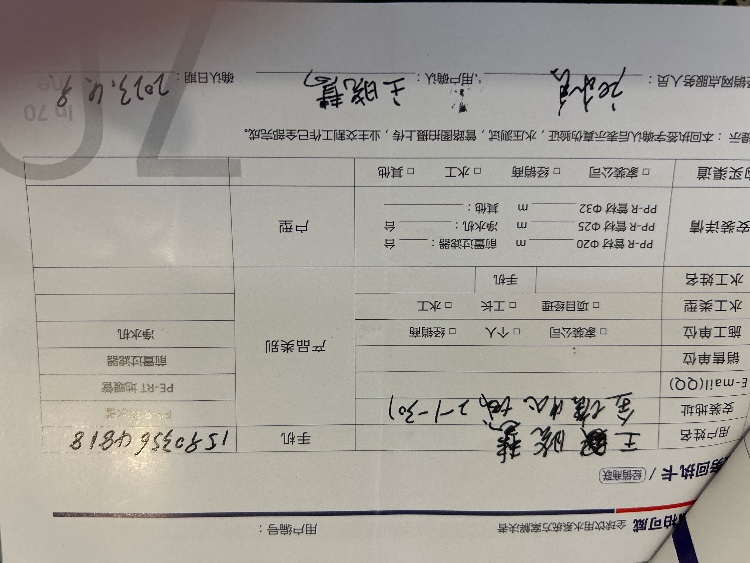 柏可威 全球饮用水系统方案解决者 用户编号：
务回执卡 / 经销商联
用户姓名 王晓慧 手机 15803564818
安装地址
E-mail(QQ) PE-RT 地暖管
销售单位 前置过滤器
施工单位 □ 家装公司 □ 个人 □ 经销商 产品类别 净水机
水工类型 □ 项目经理 □ 工长 □ 水工
水工姓名 手机
安装详情 PP-R 管材 Φ20 m 前置过滤器： 台 户型
PP-R 管材 Φ25 m 净水机： 台
PP-R 管材 Φ32 m 其他：
购买渠道 □ 家装公司 □ 经销商 □ 水工 □ 其他
提示：本回执签字确认后表示真伪验证，水压测试，管路图拍摄上传，业主交割工作已全部完成。
经销网点服务人员： 用户确认： 王晓慧 确认日期： 2023.4.9
In 70